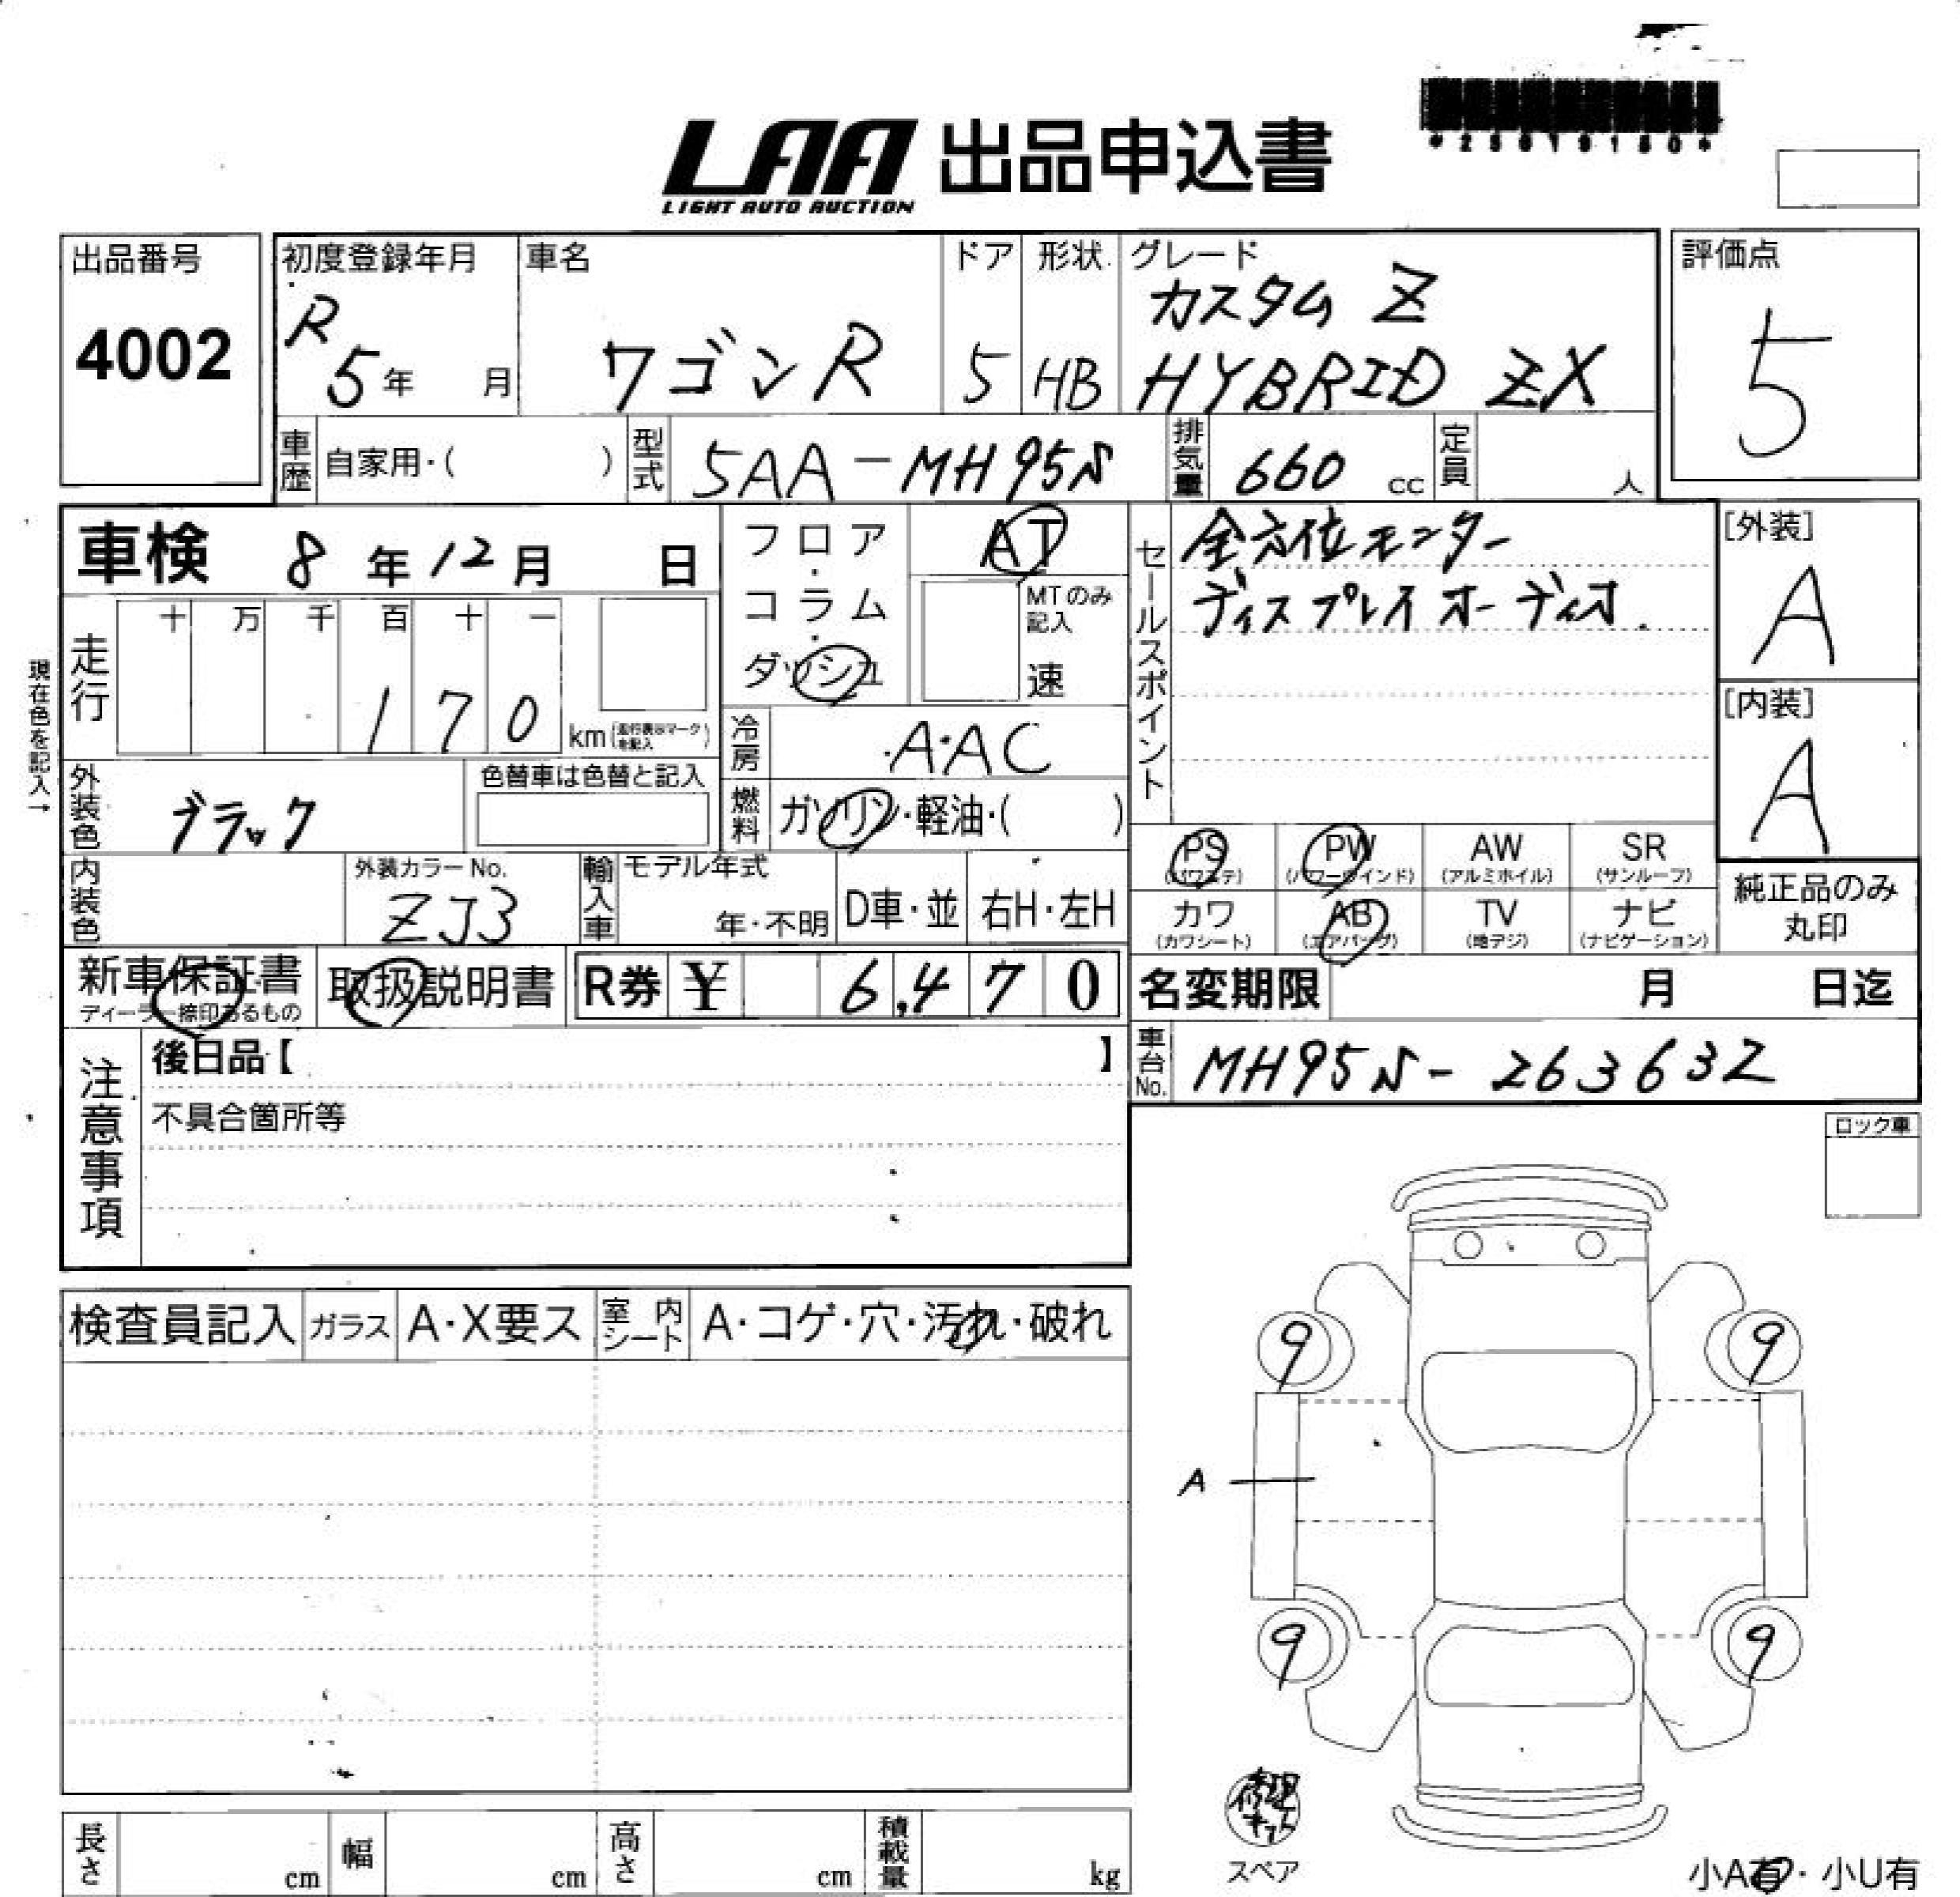 *23019180*
LAA 出品申込書
LIGHT AUTO AUCTION
出品番号
4002
初度登録年月
R 5年 月
車名
ワゴンR
ドア
5
形状
HB
グレード
カスタム Z
HYBRID ZX
評価点
5
車歴 自家用・( )
型式 5AA-MH95S
排気量 660 cc
定員 人
車検 8年12月 日
フロア・コラム・ダッシュ
AT
MTのみ記入
速
セールスポイント
全方位モニター
ディスプレイオーディオ.
[外装]
A
[内装]
A
現在色を記入→
走行
十 万 千 百 十 一
1 7 0
km(走行表示マークを記入)
冷房 AAC
外装色 ブラック
色替車は色替と記入
燃料 ガソリン・軽油・( )
内装色
外装カラーNo.
ZJ3
輸入車
モデル年式
年・不明
D車・並
右H・左H
PS (パワステ)
PW (パワーウインド)
AW (アルミホイル)
SR (サンルーフ)
カワ (カワシート)
AB (エアバッグ)
TV (地デジ)
ナビ (ナビゲーション)
純正品のみ
丸印
新車保証書
ディーラー捺印あるもの
取扱説明書
R券 ¥ 6,470
名変期限 月 日迄
注意事項
後日品【 】
不具合箇所等
車台No. MH95S-263632
ロック車
検査員記入
ガラス A・X要ス
室内シート A・コゲ・穴・汚れ・破れ
9
9
A
9
9
修理キット
スペア
長さ cm
幅 cm
高さ cm
積載量 kg
小A有・小U有